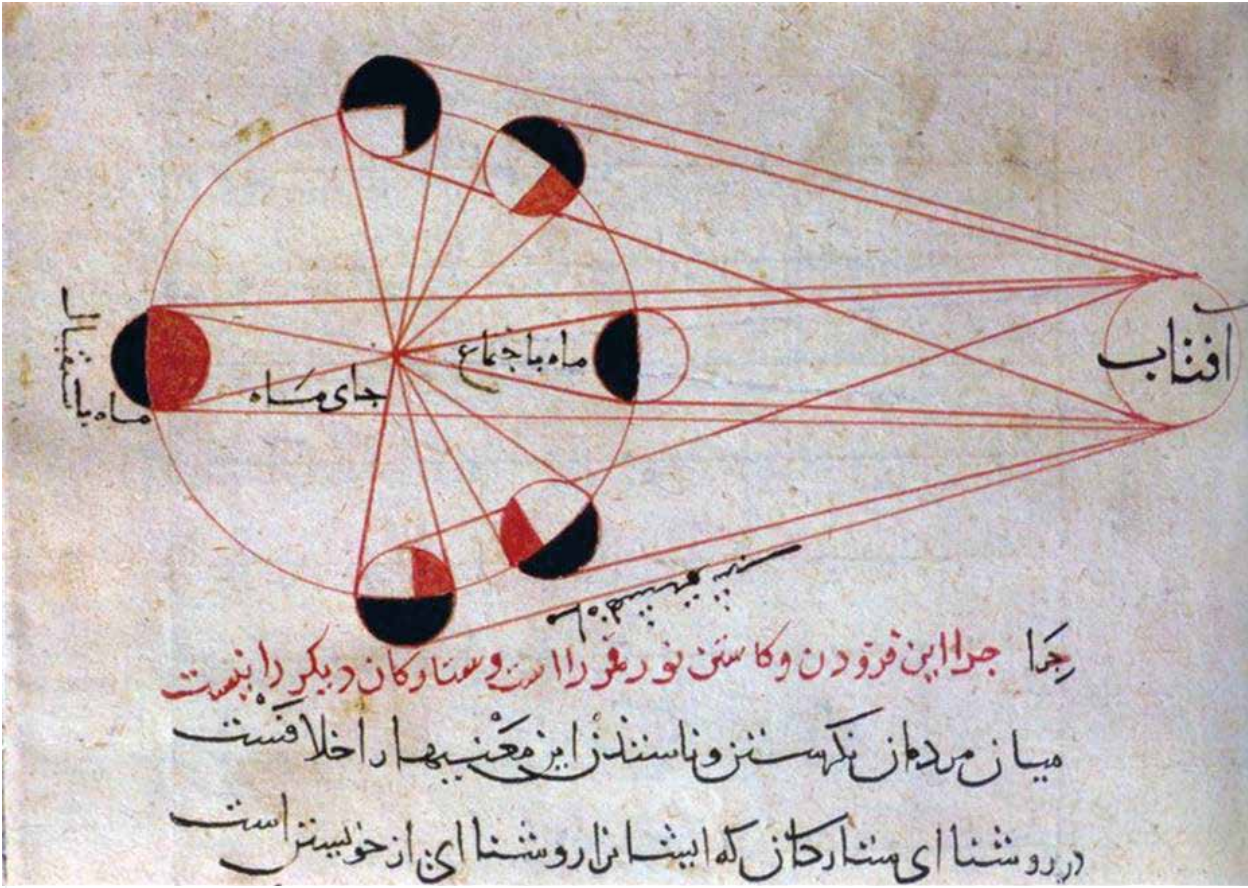 آفتاب
ماه باجتماع
جای ماه
ماه باستقبال
چرا چرا این فزودن وکاستن نور قمر را است وستارکان دیکر را نیست
میان مردمان نکرستن این معنیها را خلافست
در روشنا ای ستارکان که ایشانرا روشنا ای از خویشتن است